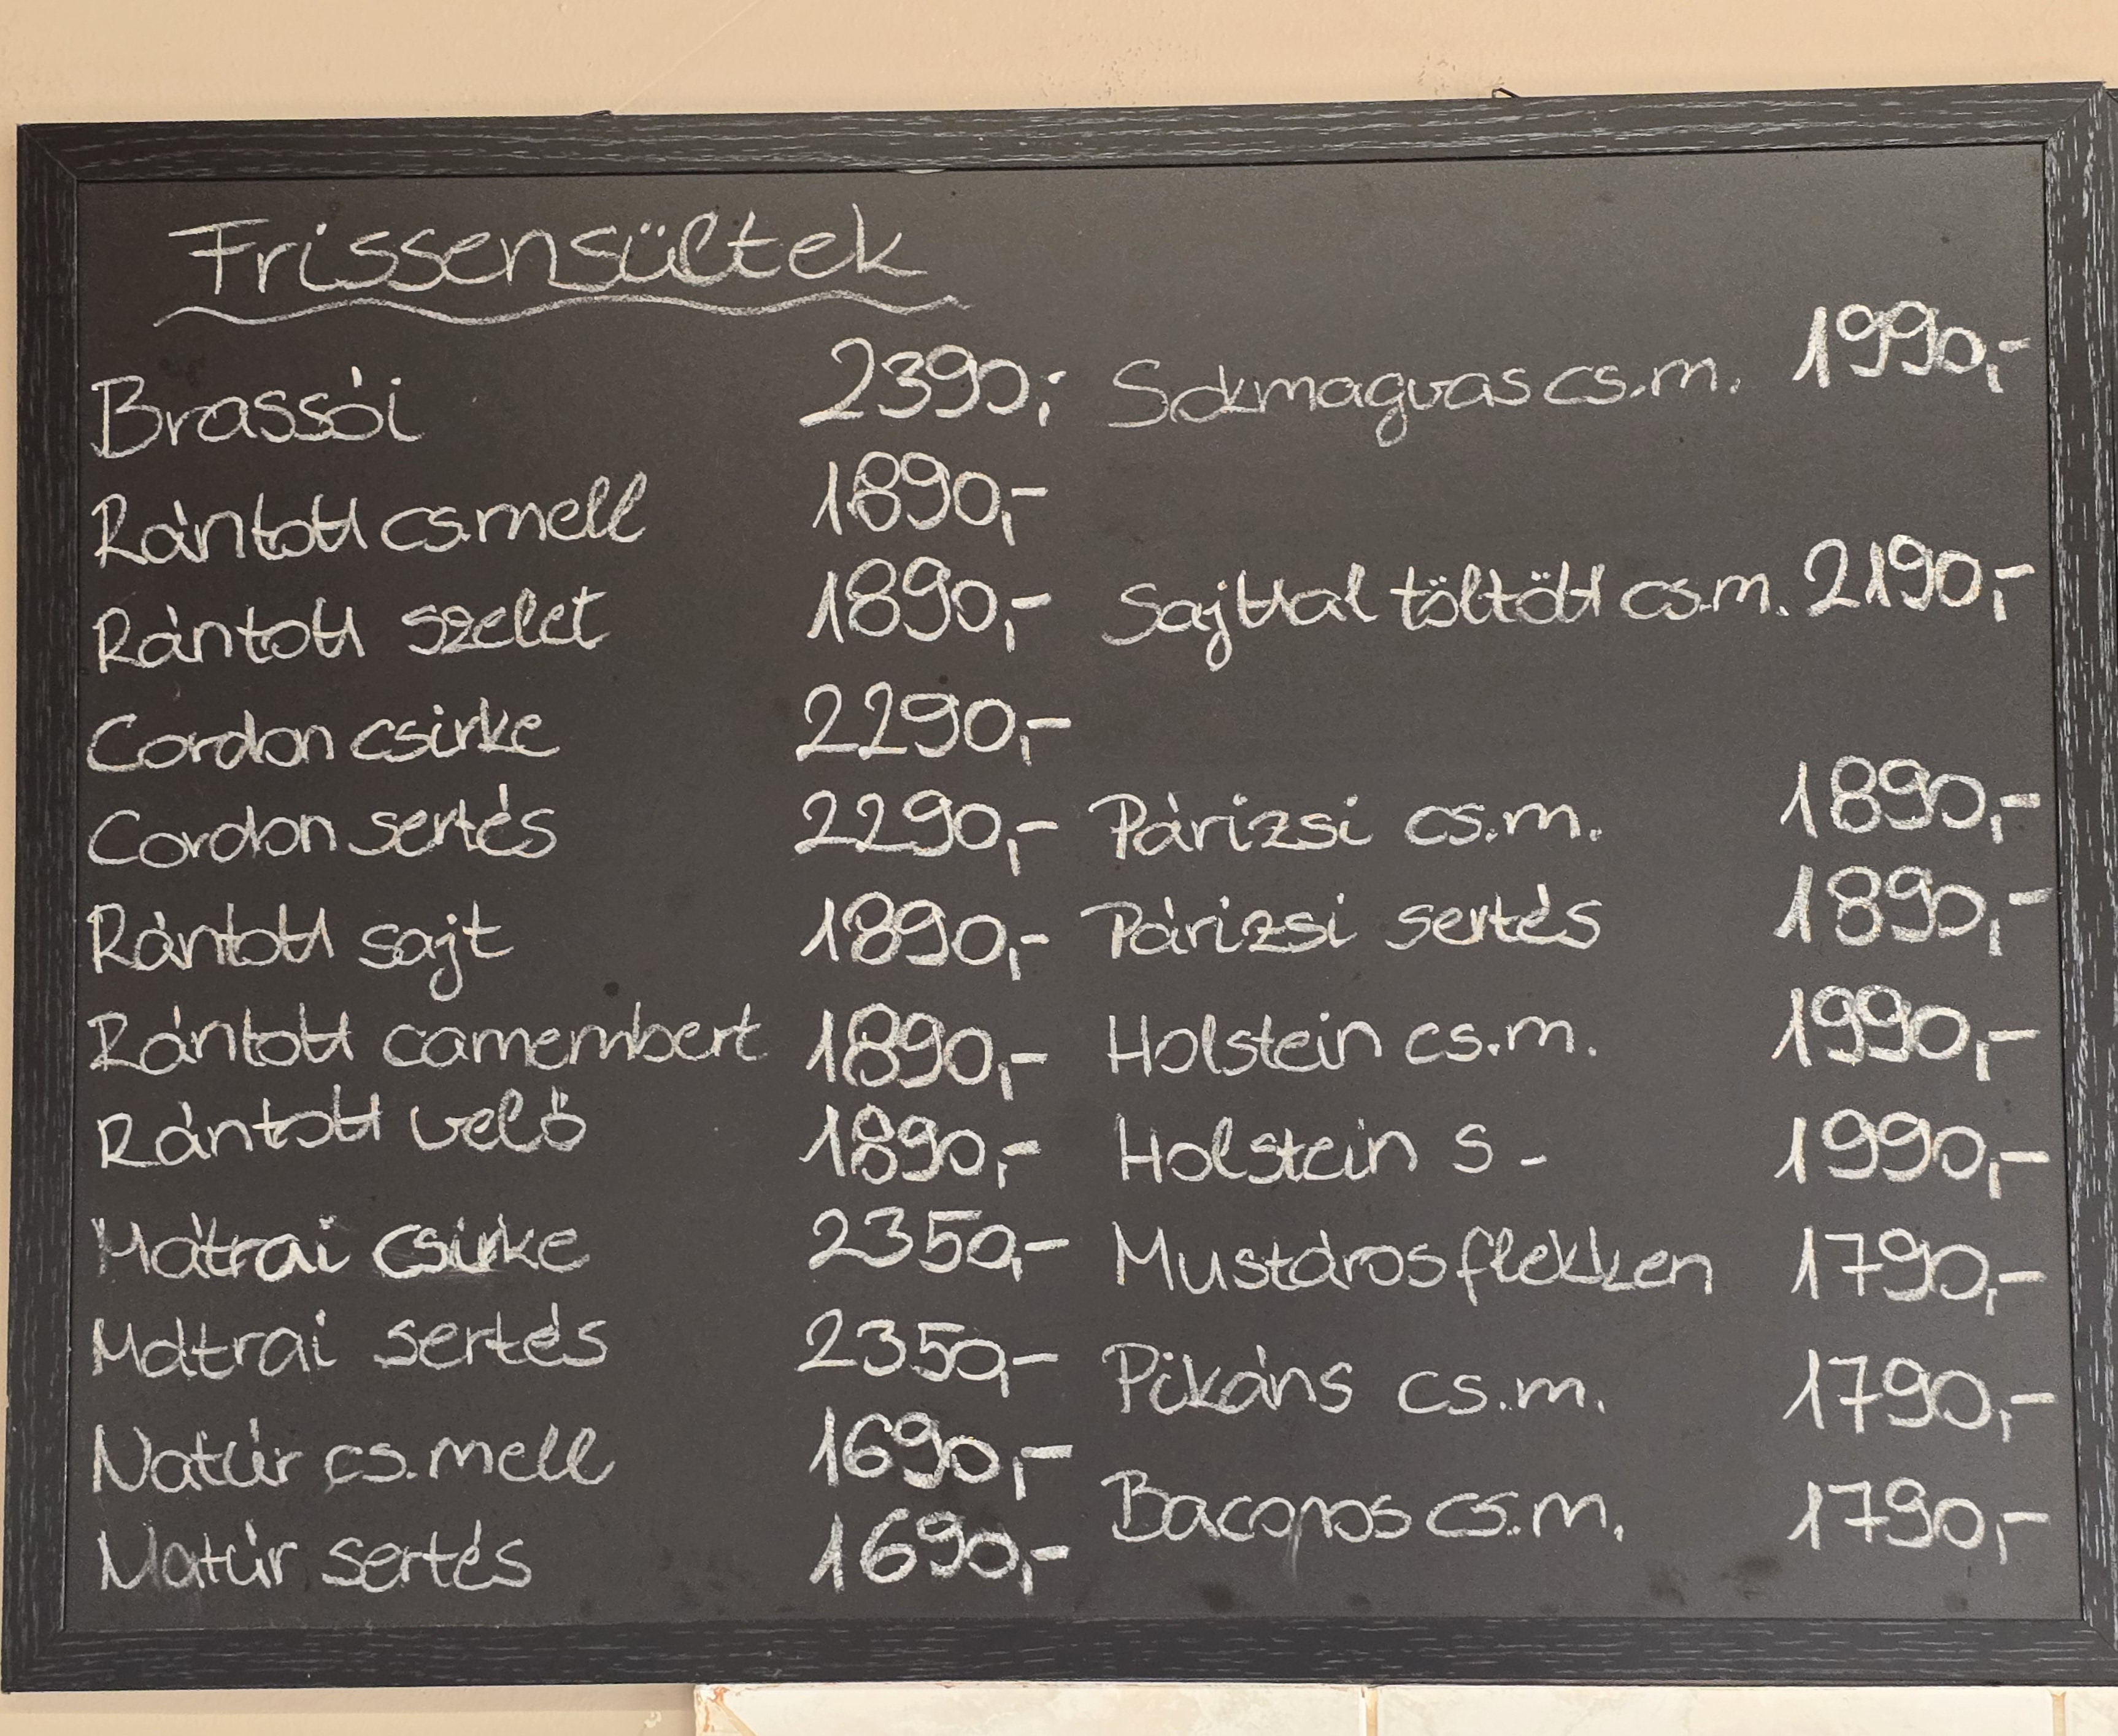 Frissensültek
Brassói 2390,-
Rántott cs.mell 1890,-
Rántott szelet 1890,-
Cordon csirke 2290,-
Cordon sertés 2290,-
Rántott sajt 1890,-
Rántott camembert 1890,-
Rántott velő 1890,-
Mátrai csirke 2350,-
Mátrai sertés 2350,-
Natúr cs.mell 1690,-
Natúr sertés 1690,-
Sokmagvas cs.m. 1990,-
Sajttal töltött cs.m. 2190,-
Párizsi cs.m. 1890,-
Párizsi sertés 1890,-
Holstein cs.m. 1990,-
Holstein s - 1990,-
Mustáros flekken 1790,-
Pikáns cs.m. 1790,-
Baconos cs.m. 1790,-